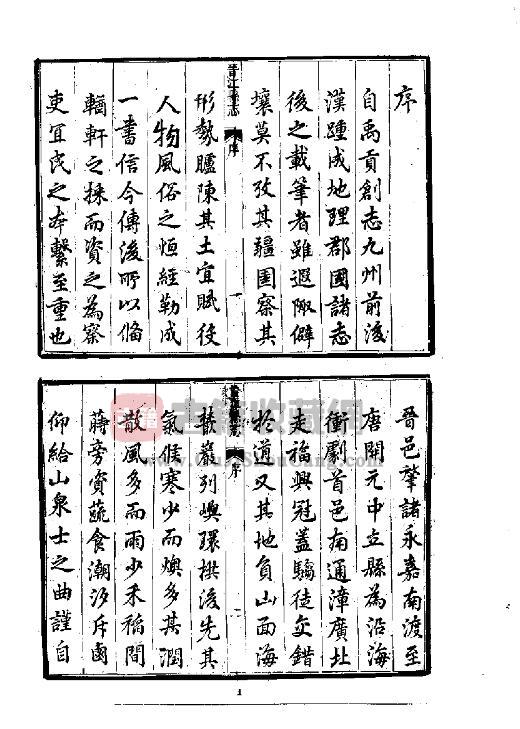 序
自禹貢創志九州前後
漢踵成地理郡國諸志
後之載筆者雖遐陬僻
壤莫不攷其疆圉察其
晉江縣志 序 一
形勢臚陳其土宜賦役
人物風俗之恒經勒成
一書信今傳後所以備
輶軒之採而資之為察
吏宜民之本繫至重也
晉邑肇諸永嘉南渡至
唐開元中立縣為沿海
衝劇首邑南通漳廣北
走福興冠蓋騶徒交錯
於道又其地負山面海
晉江縣志 序 二
列嶼環拱後先其
氣候寒少而燠多其潤
散風多而雨少禾稻間
蒔旁資蔬食潮汐斥鹵
仰給山泉士之曲謹自
古籍收藏网
1